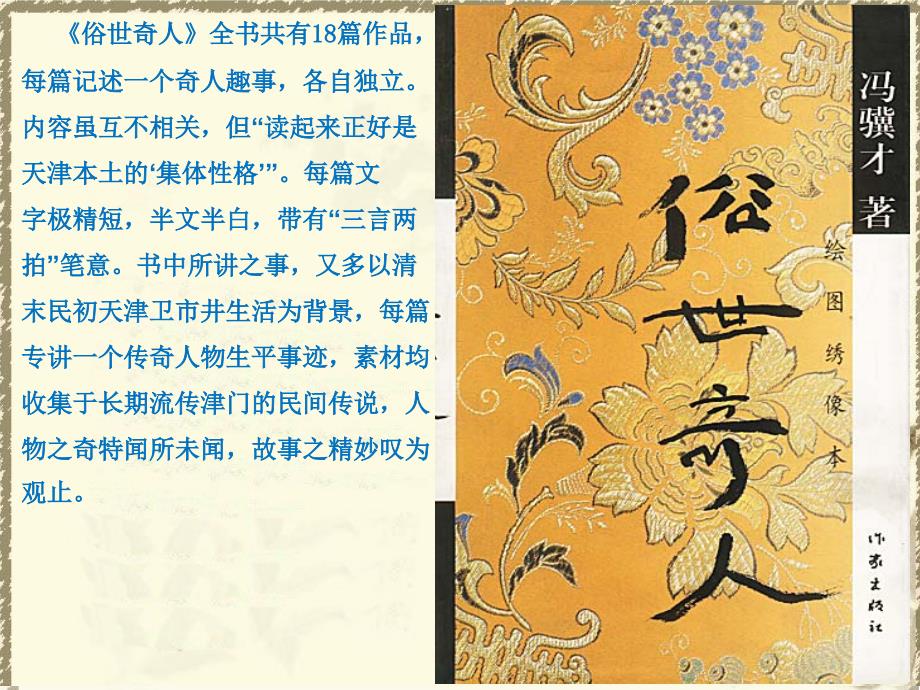 《俗世奇人》全书共有18篇作品，
每篇记述一个奇人趣事，各自独立。
内容虽互不相关，但“读起来正好是
天津本土的‘集体性格’”。每篇文
字极精短，半文半白，带有“三言两
拍”笔意。书中所讲之事，又多以清
末民初天津卫市井生活为背景，每篇
专讲一个传奇人物生平事迹，素材均
收集于长期流传津门的民间传说，人
物之奇特闻所未闻，故事之精妙叹为
观止。
冯骥才 著
俗世奇人
绘图绣像本
作家出版社